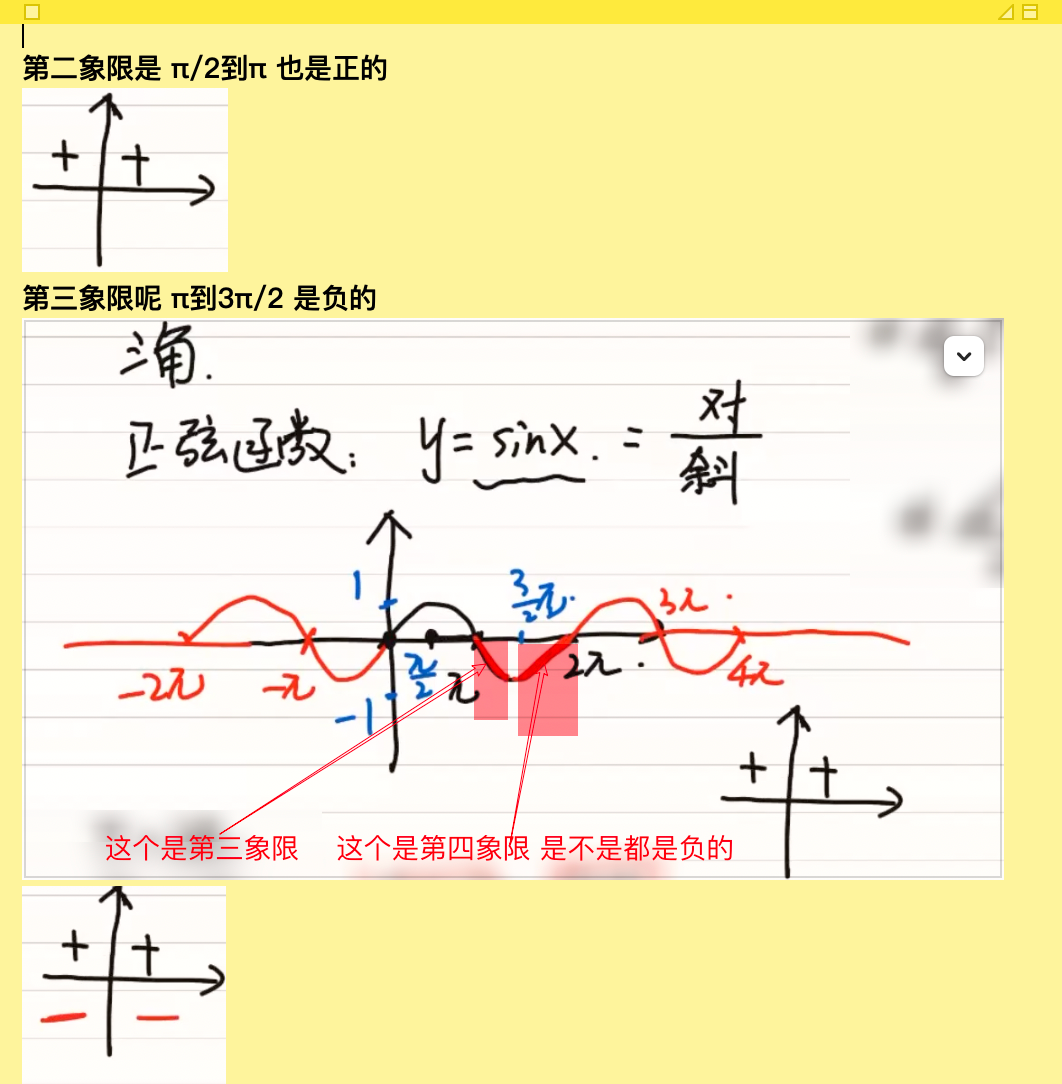 第二象限是 π/2到π 也是正的
+ +
第三象限呢 π到3π/2 是负的
三角.
正弦函数: y = sinx. = 对/斜
1
3/2 π.
3π.
-2π -π π/2 π 2π. 4π
-1
+ +
这个是第三象限 这个是第四象限 是不是都是负的
+ +
- -